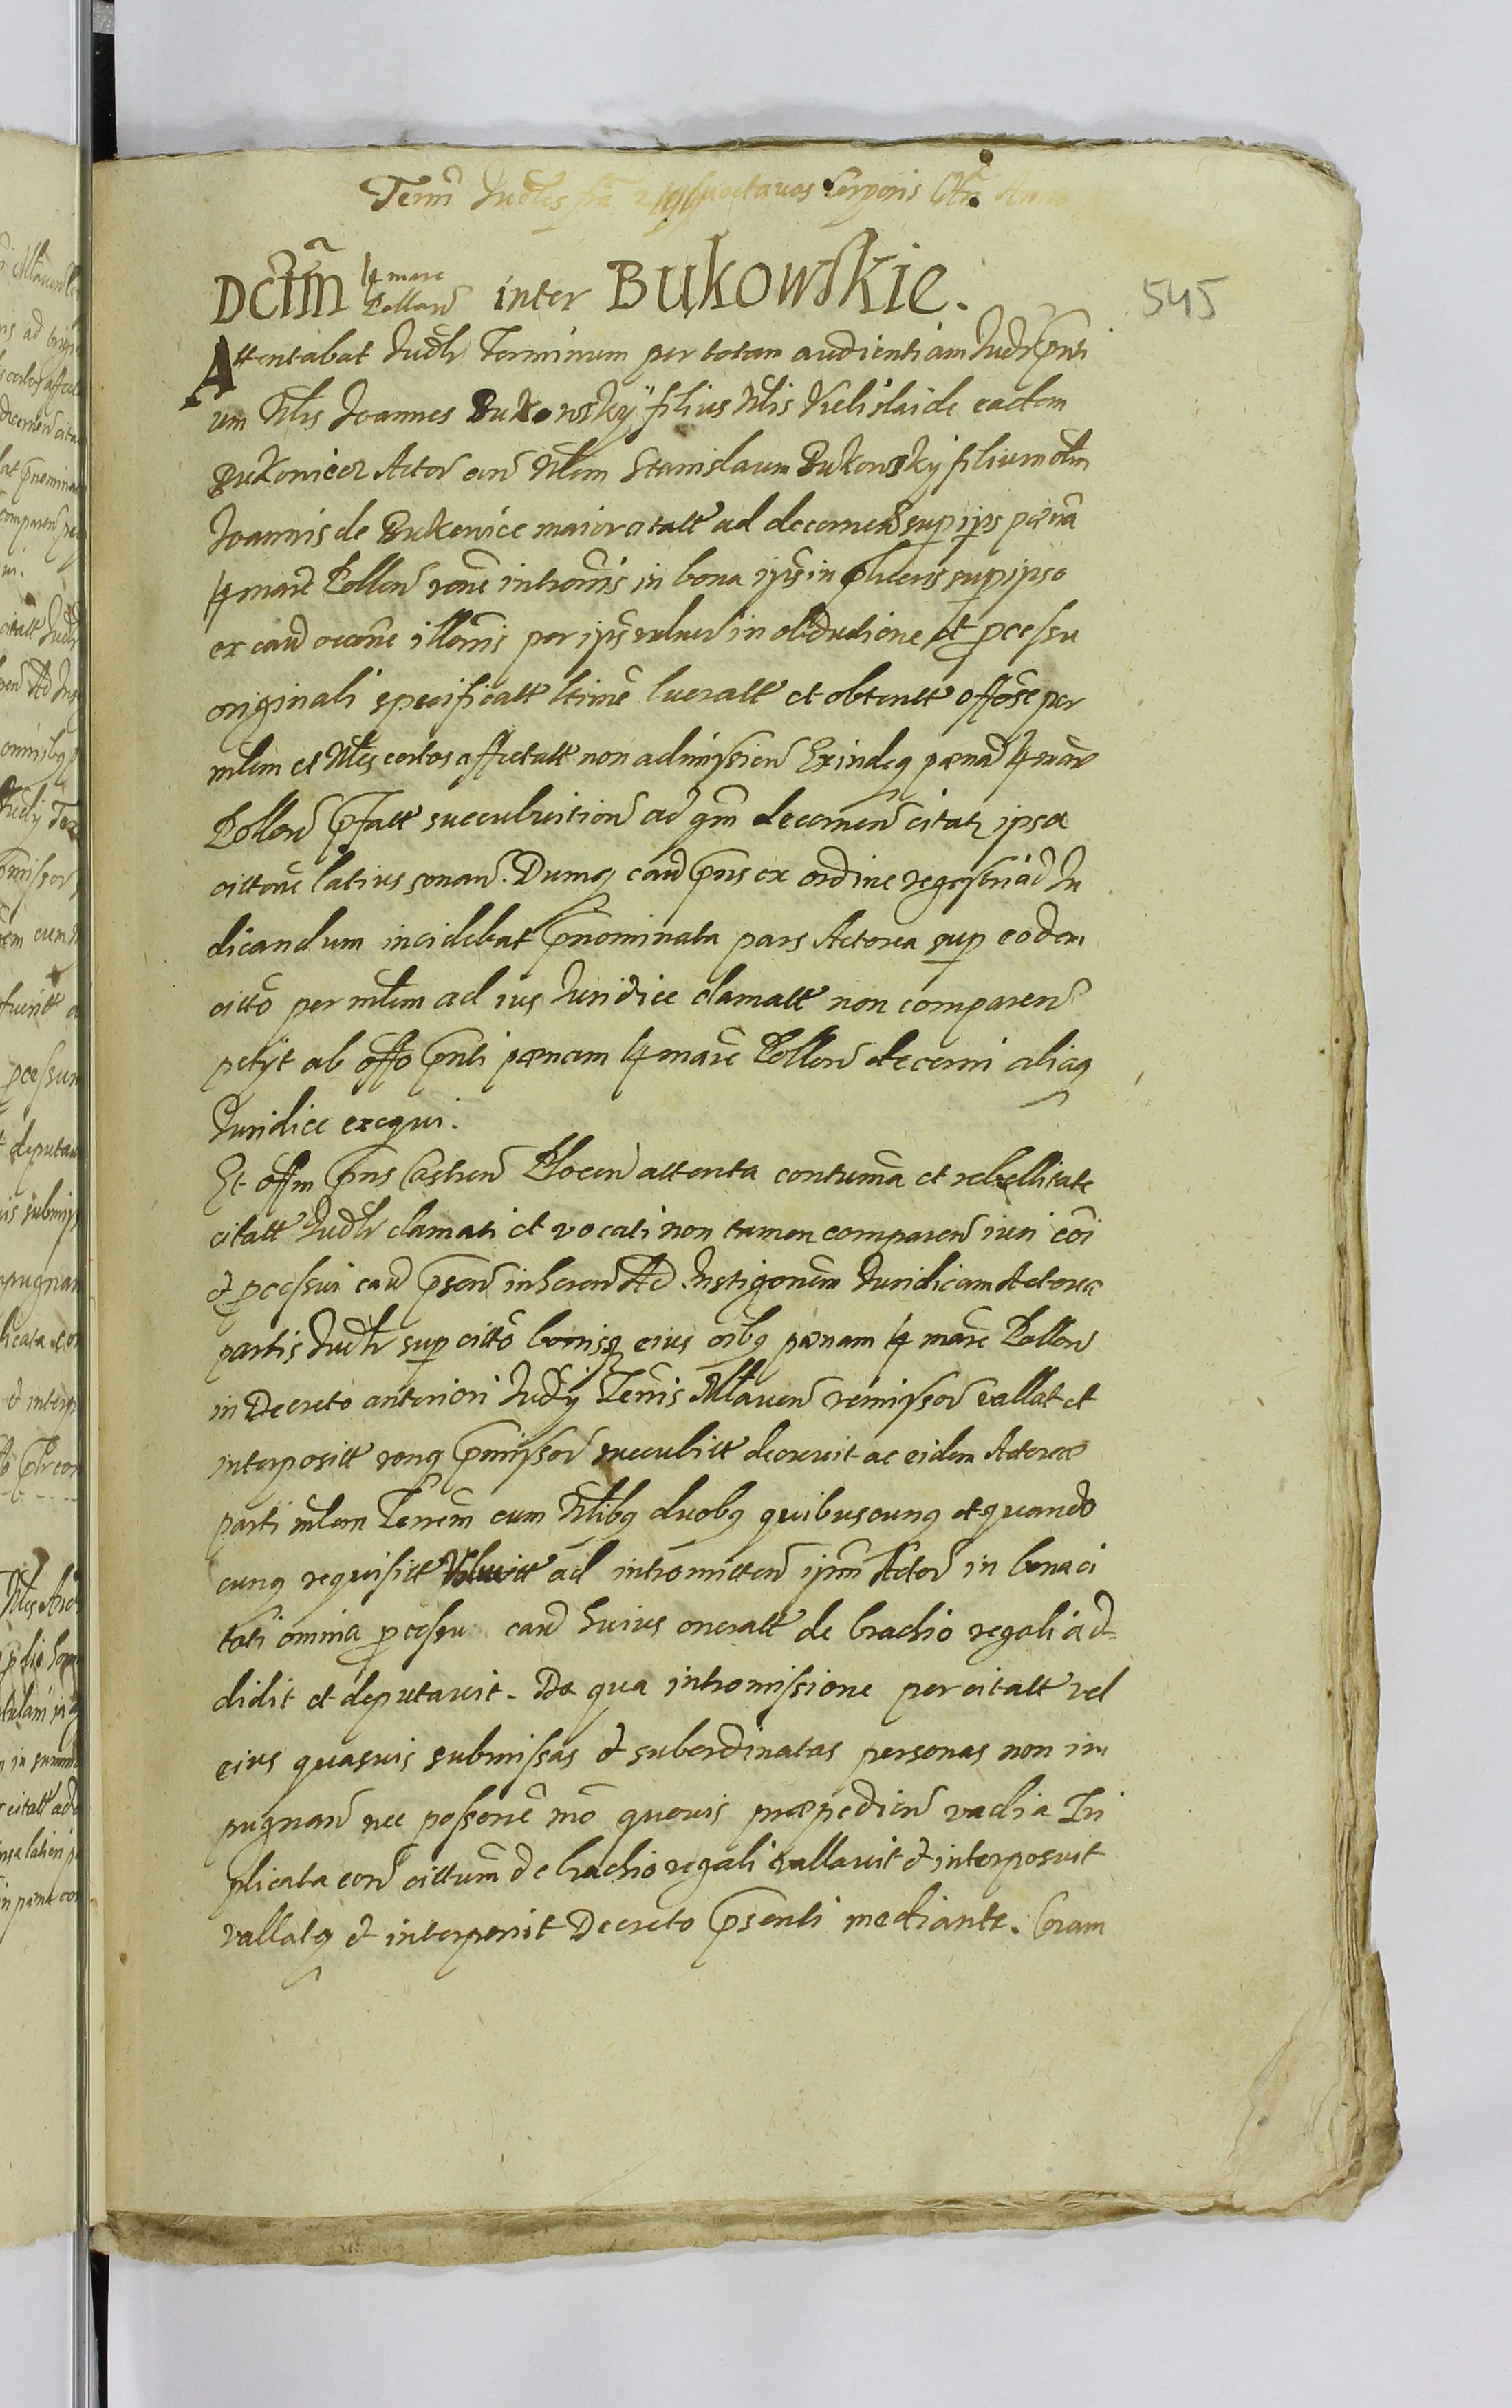 Termi Judles octavas Corporis Chri Anno
Dctm 14 marc Pollon inter Bukowskie.
545
Attentabat Judlr Terminum per totam audientiam Judr pnti
um Nlis Joannes Bukowsky filius Nlis Vielislai de eadem
Bukowice Actor con Nlem Stanislaum Bukowsky filium olim
Joannis de Bukowice maior citatt ad decernen sup ips poena
14 marc Pollon rone intromis in bona ipsi in literis sup ipso
ex cau occone illonis per ips vulner in obductione et pcessu
originali specificatt ltime lucratt et obtentt offose per
mlem et Nles certos affectatt non admission Exindeq poena 14 marc
Pollon pfatt succubuition ad qm decernen citat ipsa
cittone latius sonan. Dumq cau pns ex ordine regestri ad Ju
dicandum incidebat pnominata pars Actorea sup eodem
citto per mlem ad ius Juridice clamatt non comparen
petyt ab offo pnti poenam 14 marc Pollon decerni aliaq
Juridice exequi.
Et offm pns Castren Plocen attenta contuma et rebellitate
citatt Judlr clamati et vocati non tamen comparen iuri coi
et pcessui cau psen inheren Ad Instigonem Juridicam Actorea
partis Judlr sup citto bonisq eius oibq poenam 14 marc Pollon
in Decreto anteriori Judy Termis Mlaven remissor vallat et
interposit ronq pmissor succubitt decrevit ac eidem Actoreae
parti mlem Terrem cum Nlibq duobq quibuscunq et quando
cunq requisitt ad intromitten ipm Actor in bona ci
tati omnia pcessu cau huius oneratt de brachio regali ad
didit et deputavit. De qua intromissione per citatt vel
eius quasvis submissas et subordinatas personas non im
pugnan nec possone mo quovis praepedien vadia Tri
plicata con cittum de brachio regali vallavit et interposuit
vallatq et interponit Decreto psenti mediante. Coram